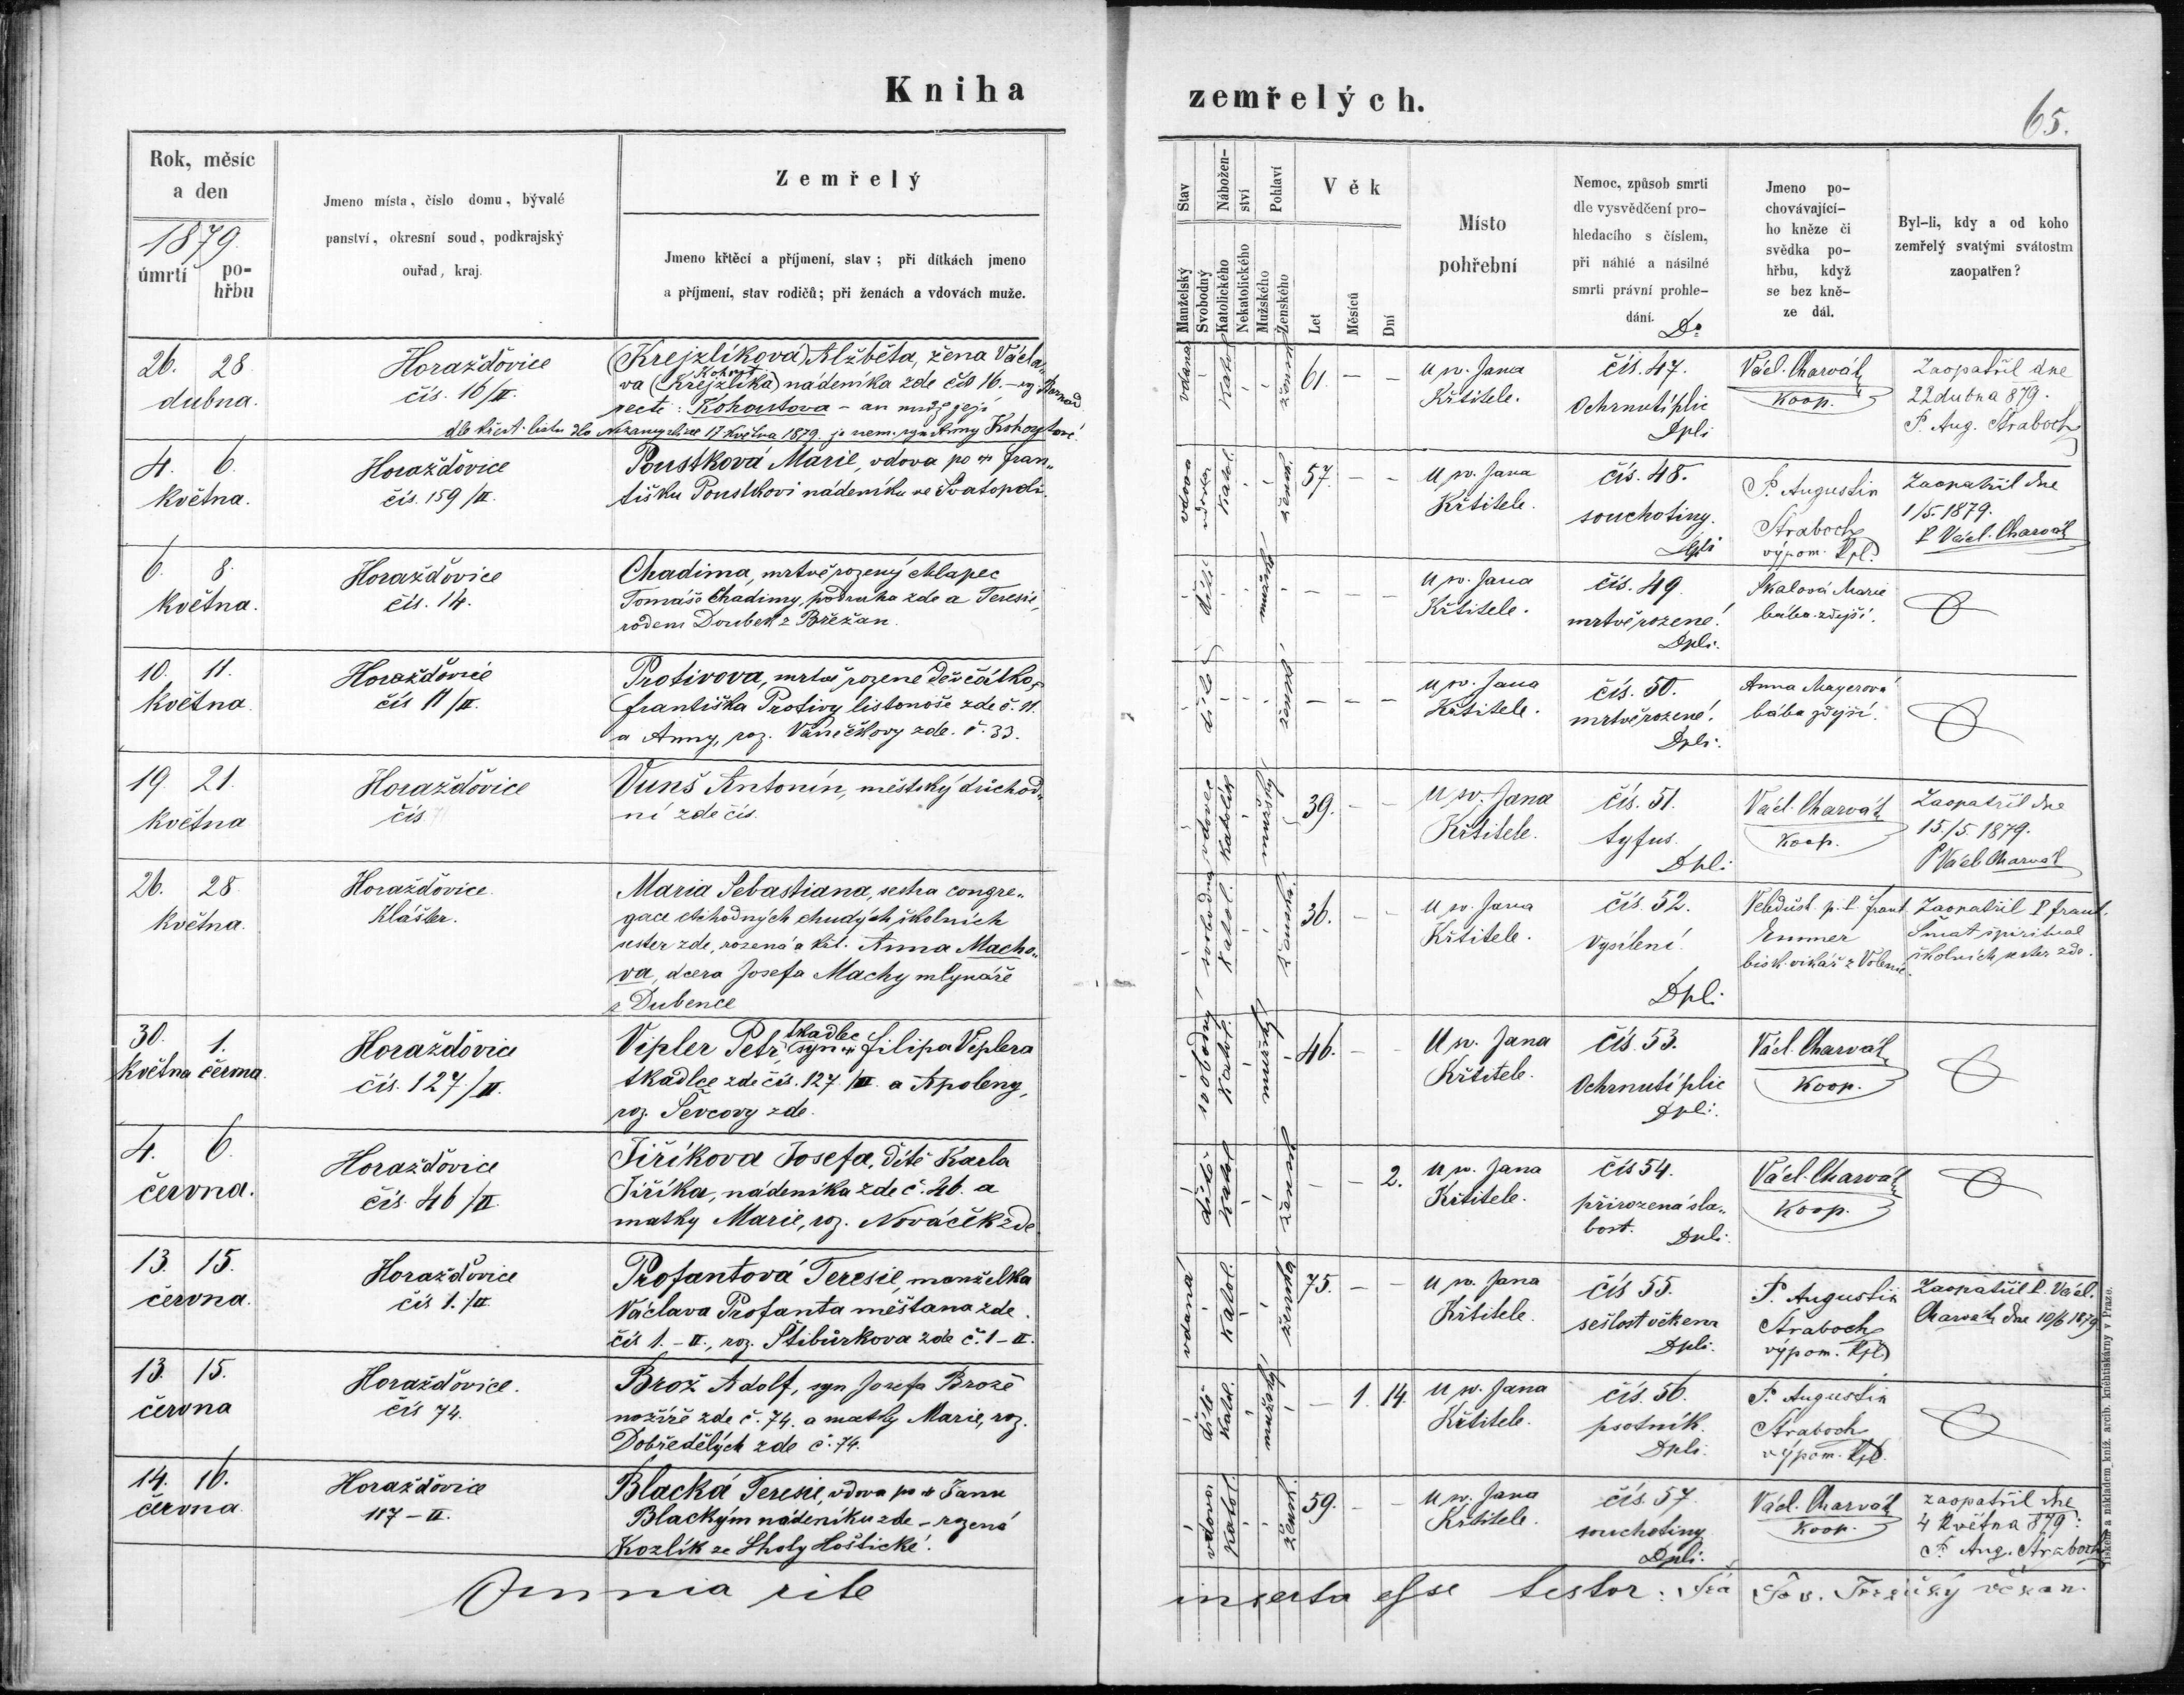 Kniha
zemřelých.
65.
Rok, měsíc
a den
1879.
úmrtí
po-
hřbu
Jmeno místa, číslo domu, bývalé
panství, okresní soud, podkrajský
ouřad, kraj.
Zemřelý
Jmeno křtěcí a příjmení, stav; při dítkách jmeno
a příjmení, stav rodičů; při ženách a vdovách muže.
Stav
Manželský
Svobodný
Nábožen-
ství
Katolického
Nekatolického
Pohlaví
Mužského
Ženského
Věk
Let
Měsíců
Dní
Místo
pohřební
Nemoc, způsob smrti
dle vysvědčení pro-
hledacího s číslem,
při náhlé a násilné
smrti právní prohle-
dání.
Jmeno po-
chovávající-
ho kněze či
svědka po-
hřbu, když
se bez kně-
ze dál.
Byl-li, kdy a od koho
zemřelý svatými svátostm
zaopatřen?
26. 28.
dubna.
Horažďovice
čís. 16/II.
(Krejzlíková) Alžběta, žena Václa„
Kohout
va (Krejzlíka) nádeníka zde čís 16. –
recte: Kohoutova – an muž její
17. května 1879. je nem. syn Anny Kohoutové.
vdaná
Katol.
žensk.
61. – –
U sv. Jana
Křtitele.
čís. 47.
Ochrnutí plic
Dpli
Václ. Charvát
Koop.
Zaopatřil dne
22 dubna 879.
P. Aug. Straboch
4. 6.
května.
Horažďovice
čís. 159/II.
Poustková Marie, vdova po Fran„
tišku Poustkovi nádeníku ve Svatopoli.
vdova
Katol.
žensk.
57. – –
U sv. Jana
Křtitele.
čís. 48.
souchotiny.
Dpli
P. Augustin
Straboch
výpom. Kpl.
Zaopatřil dne
1/5. 1879.
P. Václ. Charvát
6. 8.
května.
Horažďovice
čís. 14.
Chadima, mrtvě rozený chlapec
Tomáše Chadimy, podruha zde a Teresie,
rodem Doubek z Břežan.
dítě
mužské
– – –
U sv. Jana
Křtitele.
čís. 49.
mrtvě rozené!
Dpli.
Skalová Marie
bába zdejší.
10. 11.
května
Horažďovice
čís 11/II.
Protivova, mrtvě rozené děvčátko
Františka Protivy listonoše zde č. 11.
a Anny, roz. Vaněčkovy zde. č. 33.
dítě
žensk.
– – –
U sv. Jana
Křtitele.
čís. 50.
mrtvě rozené!
Dpli.
Anna Mayerová
bába zdejší.
19. 21.
května
Horažďovice
čís
Vuns Antonín, městský důchod„
ní zde čís.
vdovec
katolík
mužský
39. – –
U sv. Jana
Křtitele.
čís. 51.
tyfus.
Dpli
Václ. Charvát
Koop.
Zaopatřil dne
15./5. 1879.
P. Václ. Charvát
26. 28.
května.
Horažďovice
Klášter.
Maria Sebastiana, sestra congre„
gace ctihodných chudých školních
sester zde, rozená a křt. Anna Macho„
va, dcera Josefa Machy mlynáře
z Dubence
svobodna
Katol.
ženská.
36. – –
U sv. Jana
Křtitele.
čís. 52.
Vysílení.
Dpli
Veledůst. p. P. Frant.
Emmer
bisk. vikář z Volenic.
Zaopatřil P. Frant.
Šmat spiritual
školních sester zde.
30. 1.
května června.
Horažďovice
čís. 127/II.
tkadlec
Vipler Petr, syn Filipa Viplera
tkadlce zde čís. 127/II. a Apoleny,
roz. Ševcovy zde.
svobodný
Katol.
mužský
46. – –
U sv. Jana
Křtitele.
čís. 53.
Ochrnutí plic
Dpli.
Václ. Charvát
Koop.
4. 6.
června.
Horažďovice
čís. 46/II.
Jiříkova Josefa, dítě Karla
Jiříka, nádeníka zde č. 46. a
matky Marie, roz. Nováček zde.
dítě
katol.
žensk.
– – 2.
U sv. Jana
Křtitele.
čís 54.
přirozená sla„
bost. Dpli.
Václ. Charvát
Koop.
13. 15.
června.
Horažďovice
čís 1./II.
Profantová Teresie, manželka
Václava Profanta měšťana zde
čís 1. – II., roz. Štibůrkova zde č. 1 – II.
vdaná
Katol.
ženská
75. – –
U sv. Jana
Křtitele.
čís 55.
sešlost věkem
Dpli.
P. Augustin
Straboch
výpom. Kpl.
Zaopatřil P. Václ.
Charvát dne 10/6 1879
13. 15.
června
Horažďovice.
čís 74.
Brož Adolf, syn Josefa Brože
nožíře zde č. 74. a matky Marie, roz.
Dobředělých zde č. 74.
dítě
Katol.
mužský
– 1. 14.
U sv. Jana
Křtitele.
čís. 56.
psotník.
Dpli.
P. Augustin
Straboch
výpom. Kpl.
14. 16.
června.
Horažďovice
117 – II.
Blacká Teresie, vdova po Janu
Blackým nádeníku zde – rozená
Kozlík ze Lhoty Hoštické.
vdova
Katol.
žensk.
59. – –
U sv. Jana
Křtitele.
čís. 57.
souchotiny
Dpli.
Václ. Charvát
Koop.
zaopatřil dne
4 května 879:
P. Aug. Straboch
Omnia rite
inserta esse testor: